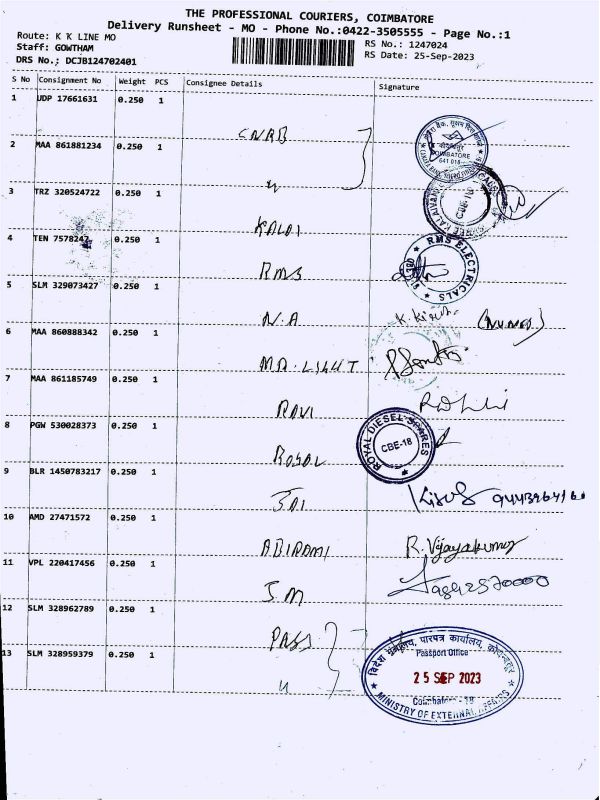 THE PROFESSIONAL COURIERS, COIMBATORE
Delivery Runsheet - MO - Phone No.:0422-3505555 - Page No.:1
Route: K K LINE MO
Staff: GOWTHAM
DRS No.; DCJB124702401
RS No.: 1247024
RS Date: 25-Sep-2023
S No Consignment No Weight PCS Consignee Details Signature
1 UDP 17661631 0.250 1
2 MAA 861881234 0.250 1
COIMBATORE
641 018
3 TRZ 320524722 0.250 1 KALAI
CBE-18
4 TEN 7578247 0.250 1 RMS
RMS ELECTRICALS
5 SLM 329073427 0.250 1 N.A
6 MAA 860888342 0.250 1
7 MAA 861185749 0.250 1 RAVI
8 PGW 530028373 0.250 1 ROYAL
ROYAL DIESEL SPARES
CBE-18
9 BLR 1450783217 0.250 1 JAI
10 AMD 27471572 0.250 1 ABIRAMI R. Vijayakumar
11 VPL 220417456 0.250 1 J M
12 SLM 328962789 0.250 1 PASS
13 SLM 328959379 0.250 1 "
विदेश मंत्रालय, पारपत्र कार्यालय, कोयम्बतूर
Passport Office
25 SEP 2023
Coimbatore - 18
MINISTRY OF EXTERNAL AFFAIRS